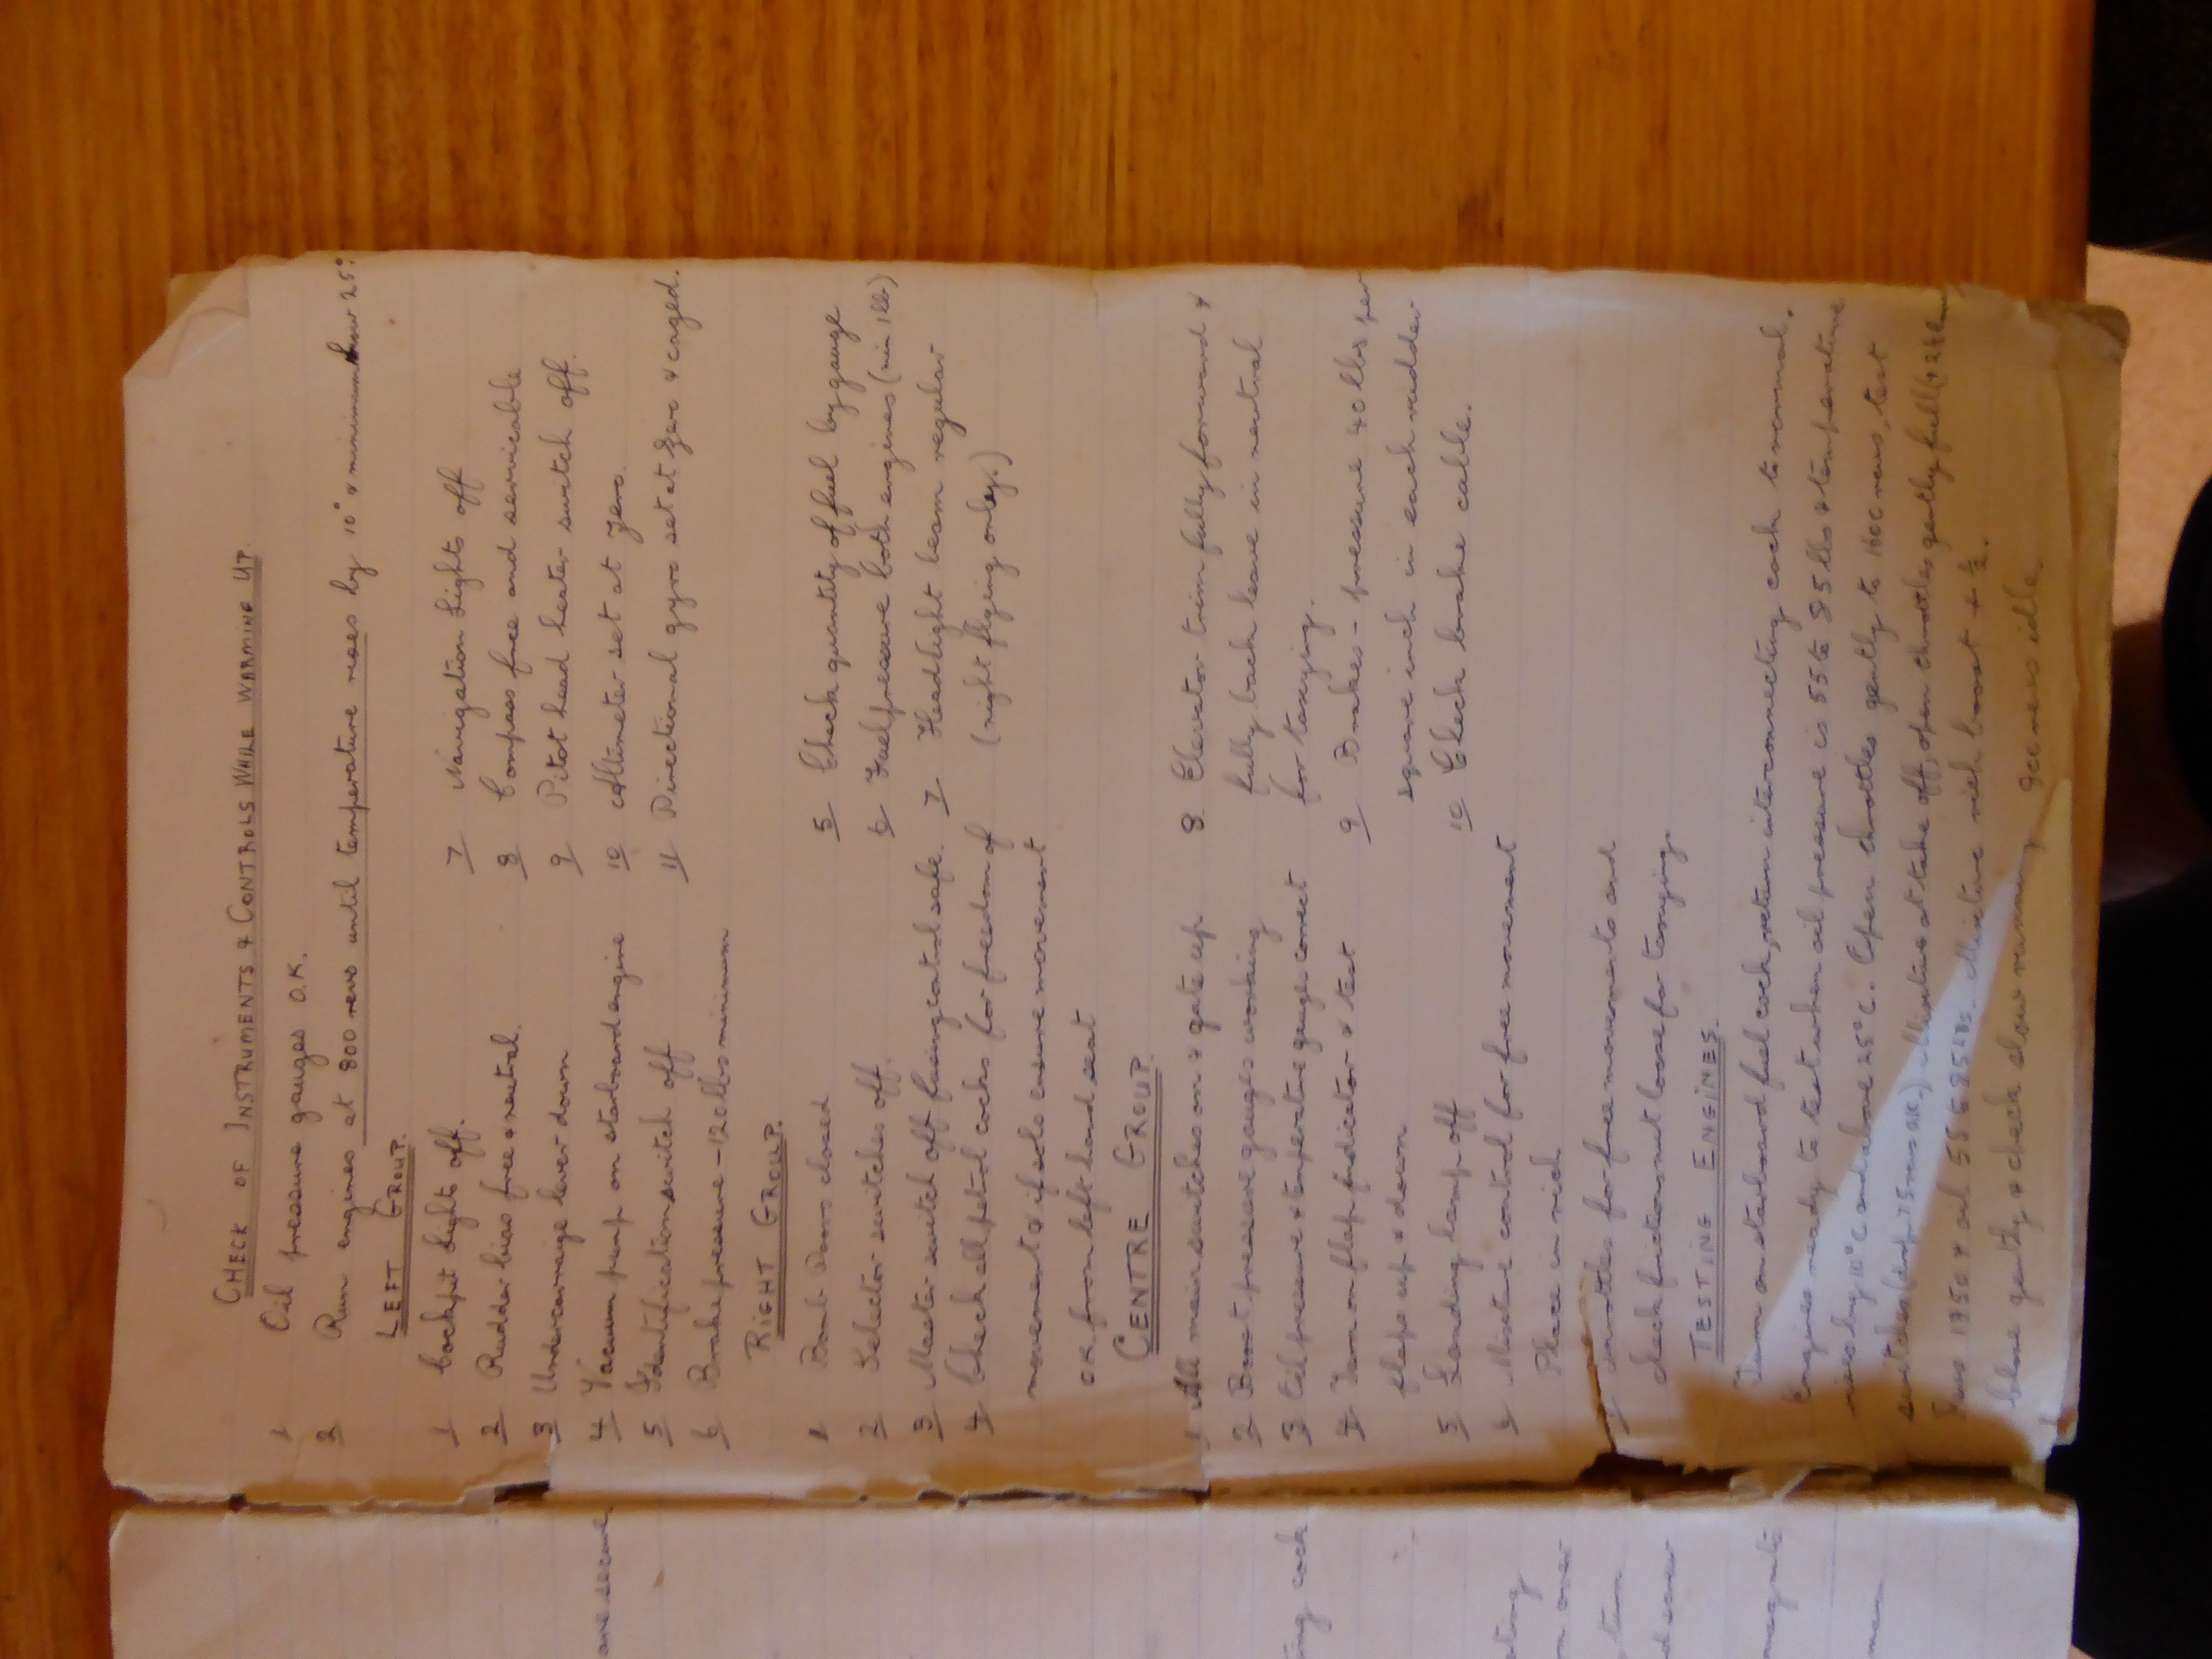 CHECK OF INSTRUMENTS & CONTROLS WHILE WARMING UP.
1 Oil pressure gauges O.K.
2 Run engines at 800 revs until temperature rises by 10° & minimum 25°
LEFT GROUP.
1 Cockpit Lights off.
2 Rudder bias free & neutral.
3 Undercarraige lever down
4 Vacuum pump on starboard engine
5 Identification switch off
6 Brake pressure - 120 lbs minimum
7 Navigation Lights off
8 Compass free and servicable
9 Pitot head heater switch off.
10 Altimeter set at zero.
11 Directional gyro set at zero & caged.
RIGHT GROUP.
1 Bomb Doors closed
2 Selector switches off.
3 Master switch off fusing control safe.
4 Check all petrol cocks for freedom of
movement & if solo ensure movement
OK from left hand seat
5 Check quantity of fuel by gauge
6 Fuel pressure both engines (min 1lb)
7 Headlight beam regular
(night flying only.)
CENTRE GROUP.
1 All main switches on & gate up.
2 Boost pressure gauges working
3 Oil pressure & temperature gauges correct
4 Turn on flap indicator & test
flaps up & down
5 Landing lamp off
6 Mixture control for free movement
Place in rich
7 throttles for free movements and
check friction nut loose for taxying.
8 Elevator trim fully forward &
fully back leave in neutral
for taxying.
9 Brakes - pressure 40 lbs per
square inch in each rudder
10 Check brake cable.
TESTING ENGINES.
Turn on starboard fuel cock, return interconnecting cock to normal.
Engines ready to test when oil pressure is 55 to 85 lbs & temperature
rises by 10°C and above 25°C. Open throttles gently to 1600 revs, test
switches (drop 75 revs OK.) at take off, open throttles gently full
Revs 1950 & oil 55 to 85 lbs. Mixture rich boost + ½.
Close gently & check slow running, revs idle.
are secure
ing cock